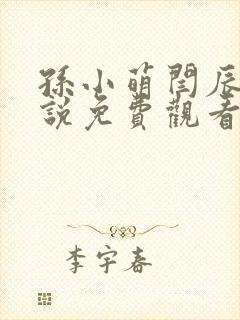 孫小萌閏辰
說免費觀看
李宇春